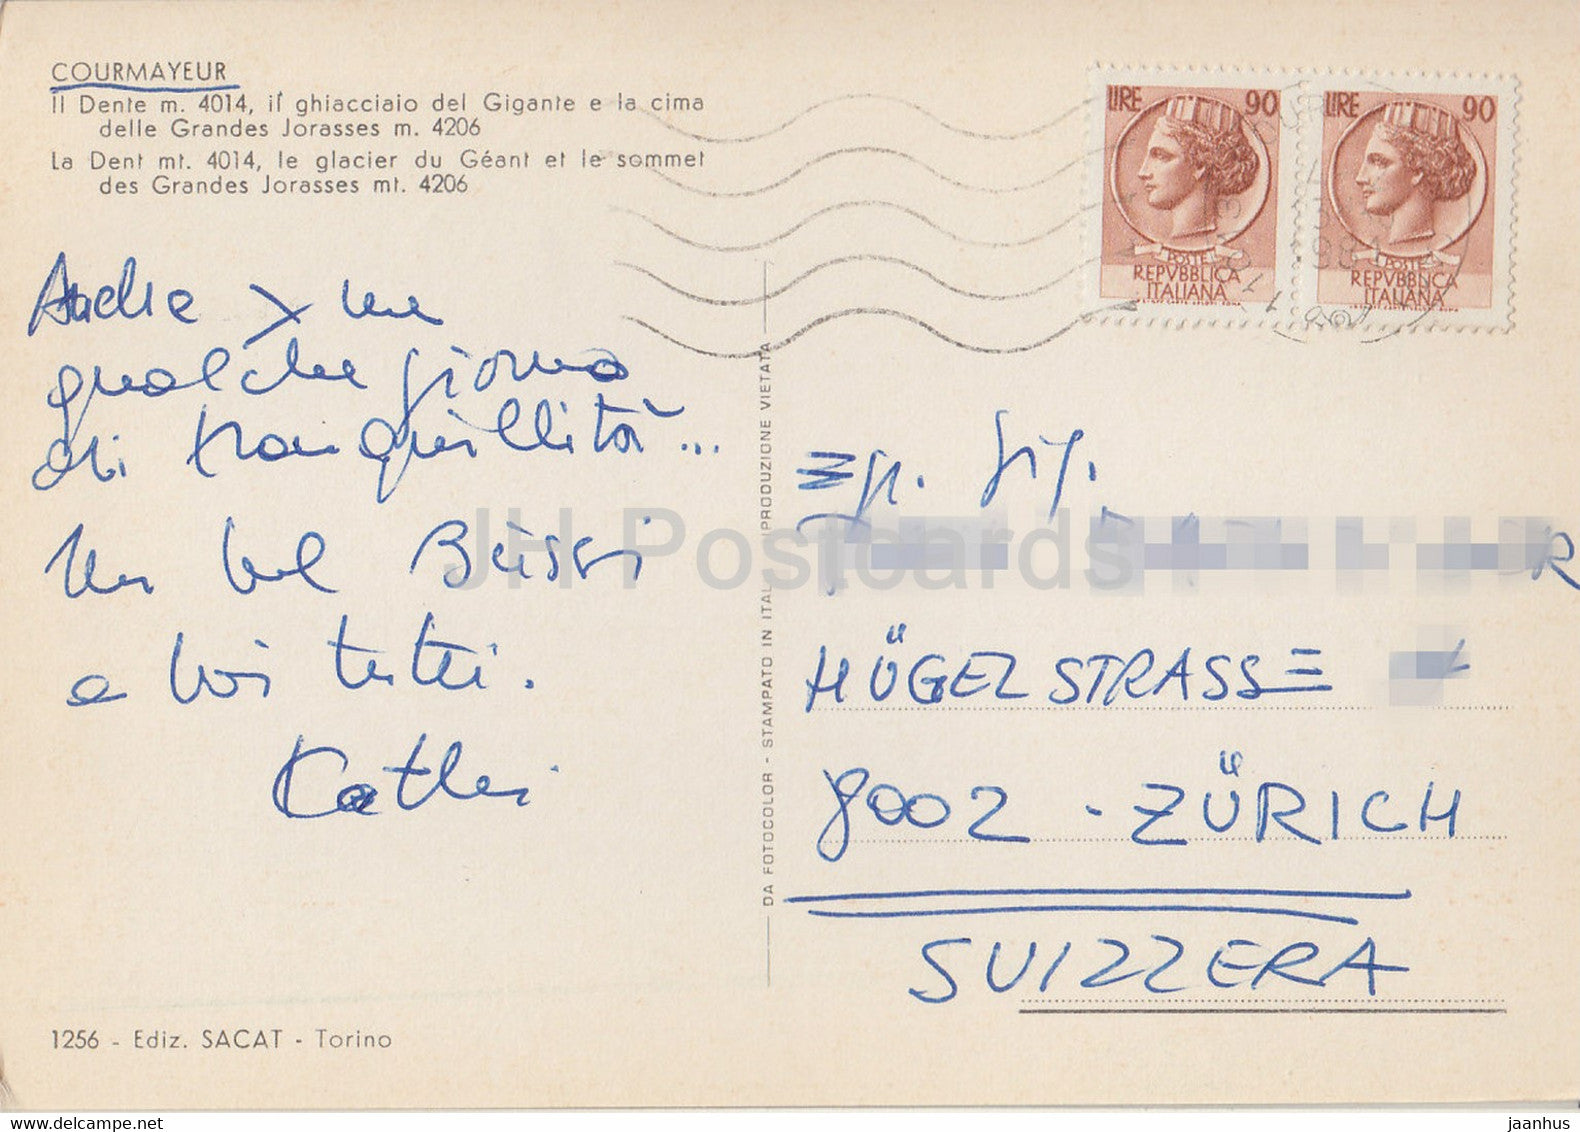 COURMAYEUR
Il Dente m. 4014, il ghiacciaio del Gigante e la cima
delle Grandes Jorasses m. 4206
La Dent mt. 4014, le glacier du Géant et le sommet
des Grandes Jorasses mt. 4206
LIRE 90
POSTE
REPVBBLICA
ITALIANA
LIRE 90
POSTE
REPVBBLICA
ITALIANA
Anche x me
qualche giorno
di tranquillità...
Un bel
a voi tutti.
DA FOTOCOLOR - STAMPATO IN ITAL RIPRODUZIONE VIETATA
JH Postcards
Sig.
R
HÜGELSTRASSE
8002 - ZÜRICH
SUIZZERA
1256 - Ediz. SACAT - Torino
jaanhus